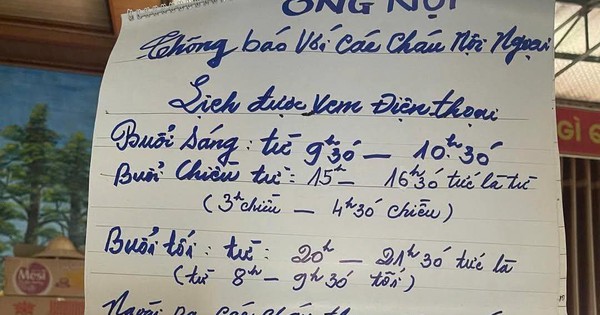 ÔNG NỘI
Thông báo Với Các Cháu Nội Ngoại
Lịch được xem Điện thoại
Buổi Sáng: từ 9h30' — 10h30'
Buổi Chiều từ: 15h — 16h30' tức là từ
(3h chiều — 4h30' chiều)
Buổi tối: từ: 20h — 21h30' tức là
(từ 8h — 9h30' tối)
Ngoài ra các cháu
GÌ
Mesi